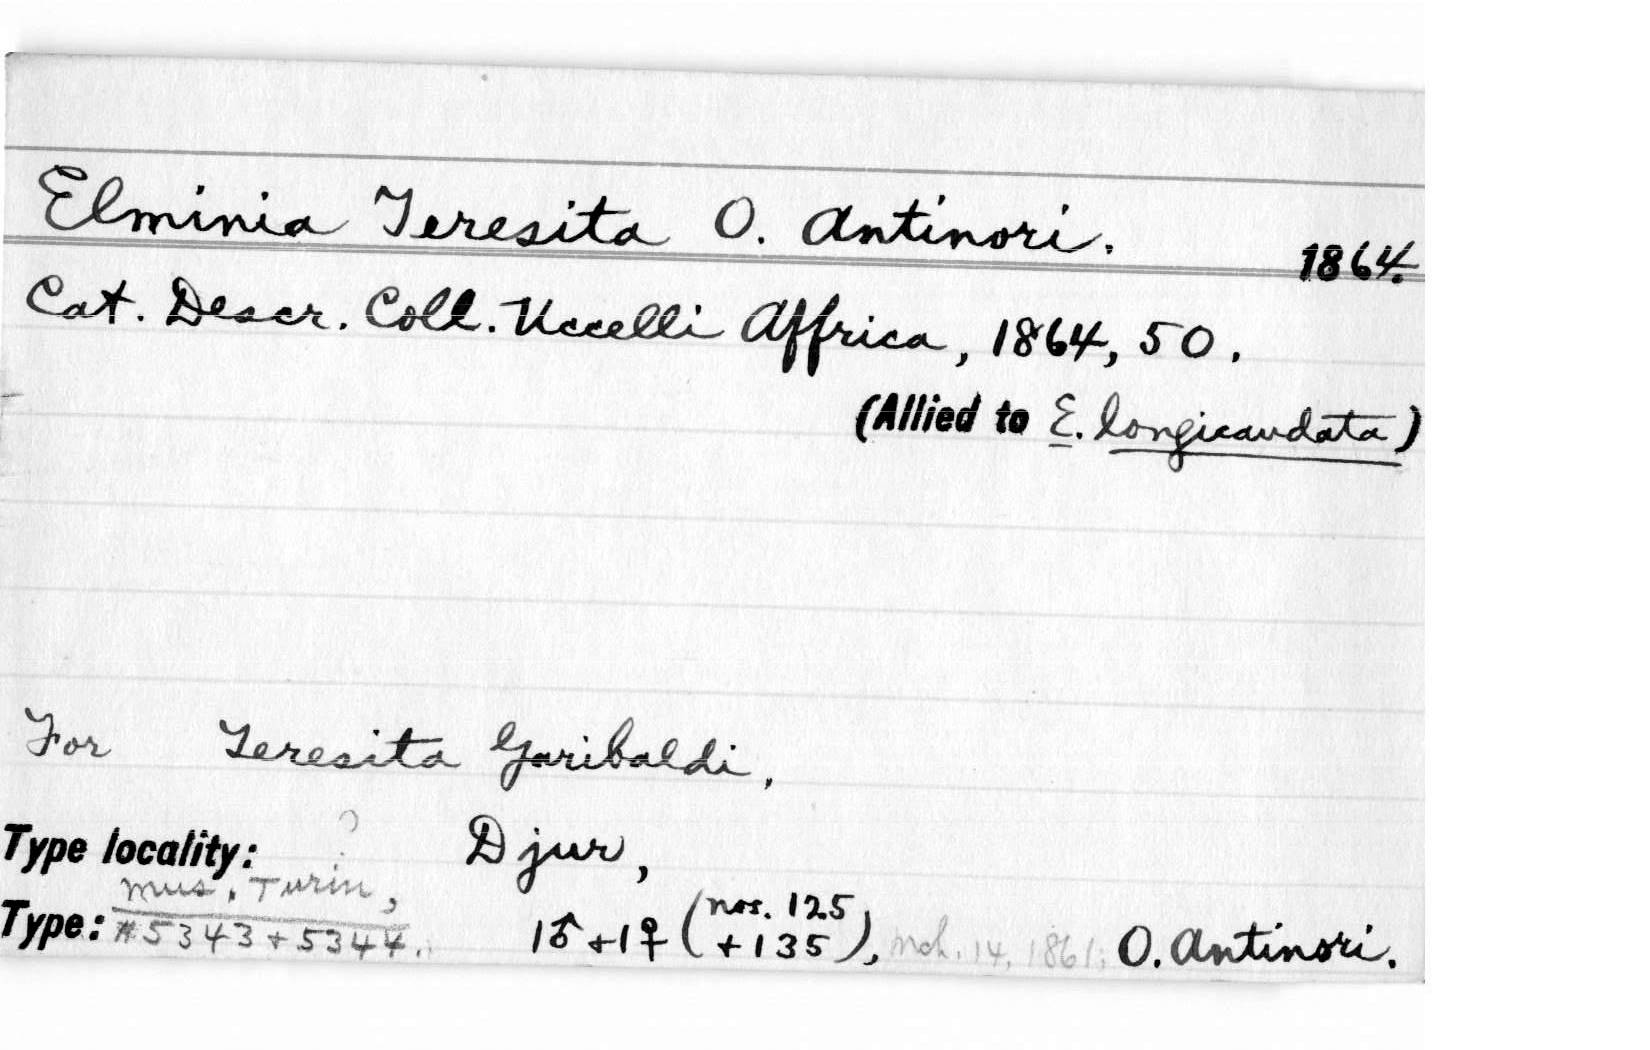 Elminia Teresita O. Antinori.
1864.
Cat. Descr. Coll. Uccelli Affrica, 1864, 50.
(Allied to E. longicaudata)
For Teresita Garibaldi,
Type locality: ? Djur,
Mus. Turin,
Type: #5343 + 5344. 1♂ + 1♀ (nos. 125 + 135), Mch. 14, 1861; O. Antinori.